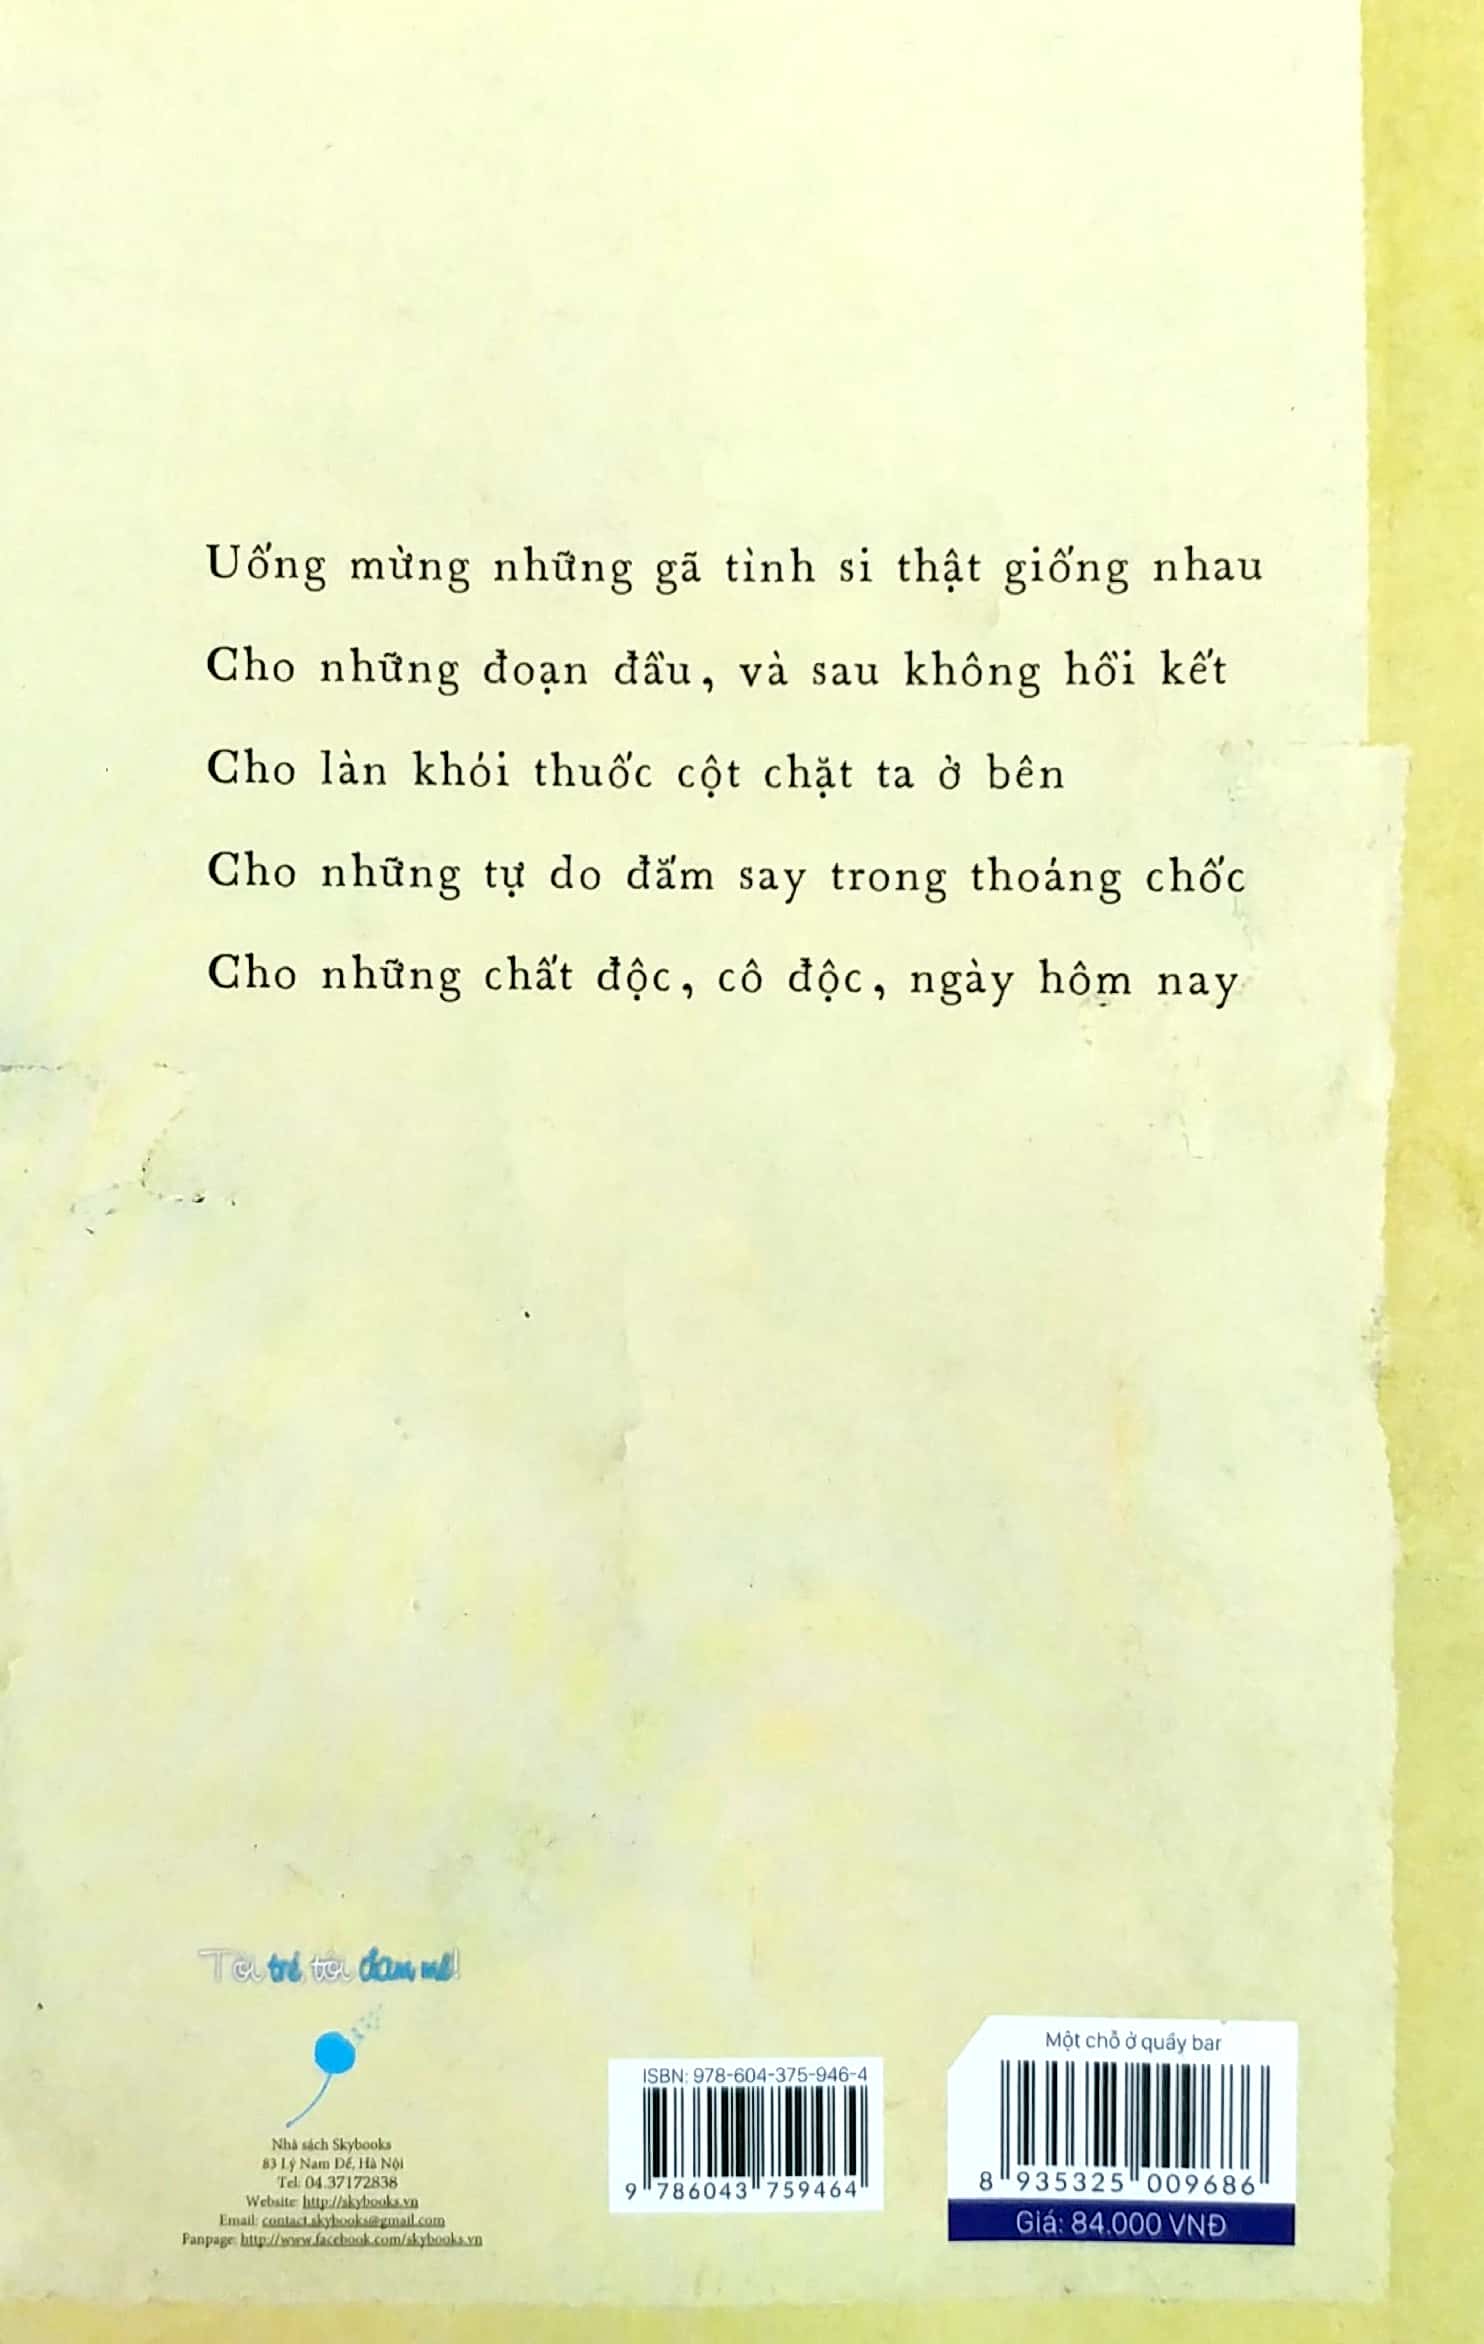 Uống mừng những gã tình si thật giống nhau
Cho những đoạn đầu, và sau không hồi kết
Cho làn khói thuốc cột chặt ta ở bên
Cho những tự do đắm say trong thoáng chốc
Cho những chất độc, cô độc, ngày hôm nay
Tôi trẻ, tôi đam mê!
Nhà sách Skybooks
83 Lý Nam Đế, Hà Nội
Tel: 04.37172838
Website: http://skybooks.vn
Email: contact.skybooks@gmail.com
Fanpage: http://www.facebook.com/skybooks.vn
ISBN: 978-604-375-946-4
9 786043 759464
Một chỗ ở quầy bar
8 935325 009686
Giá: 84.000 VNĐ